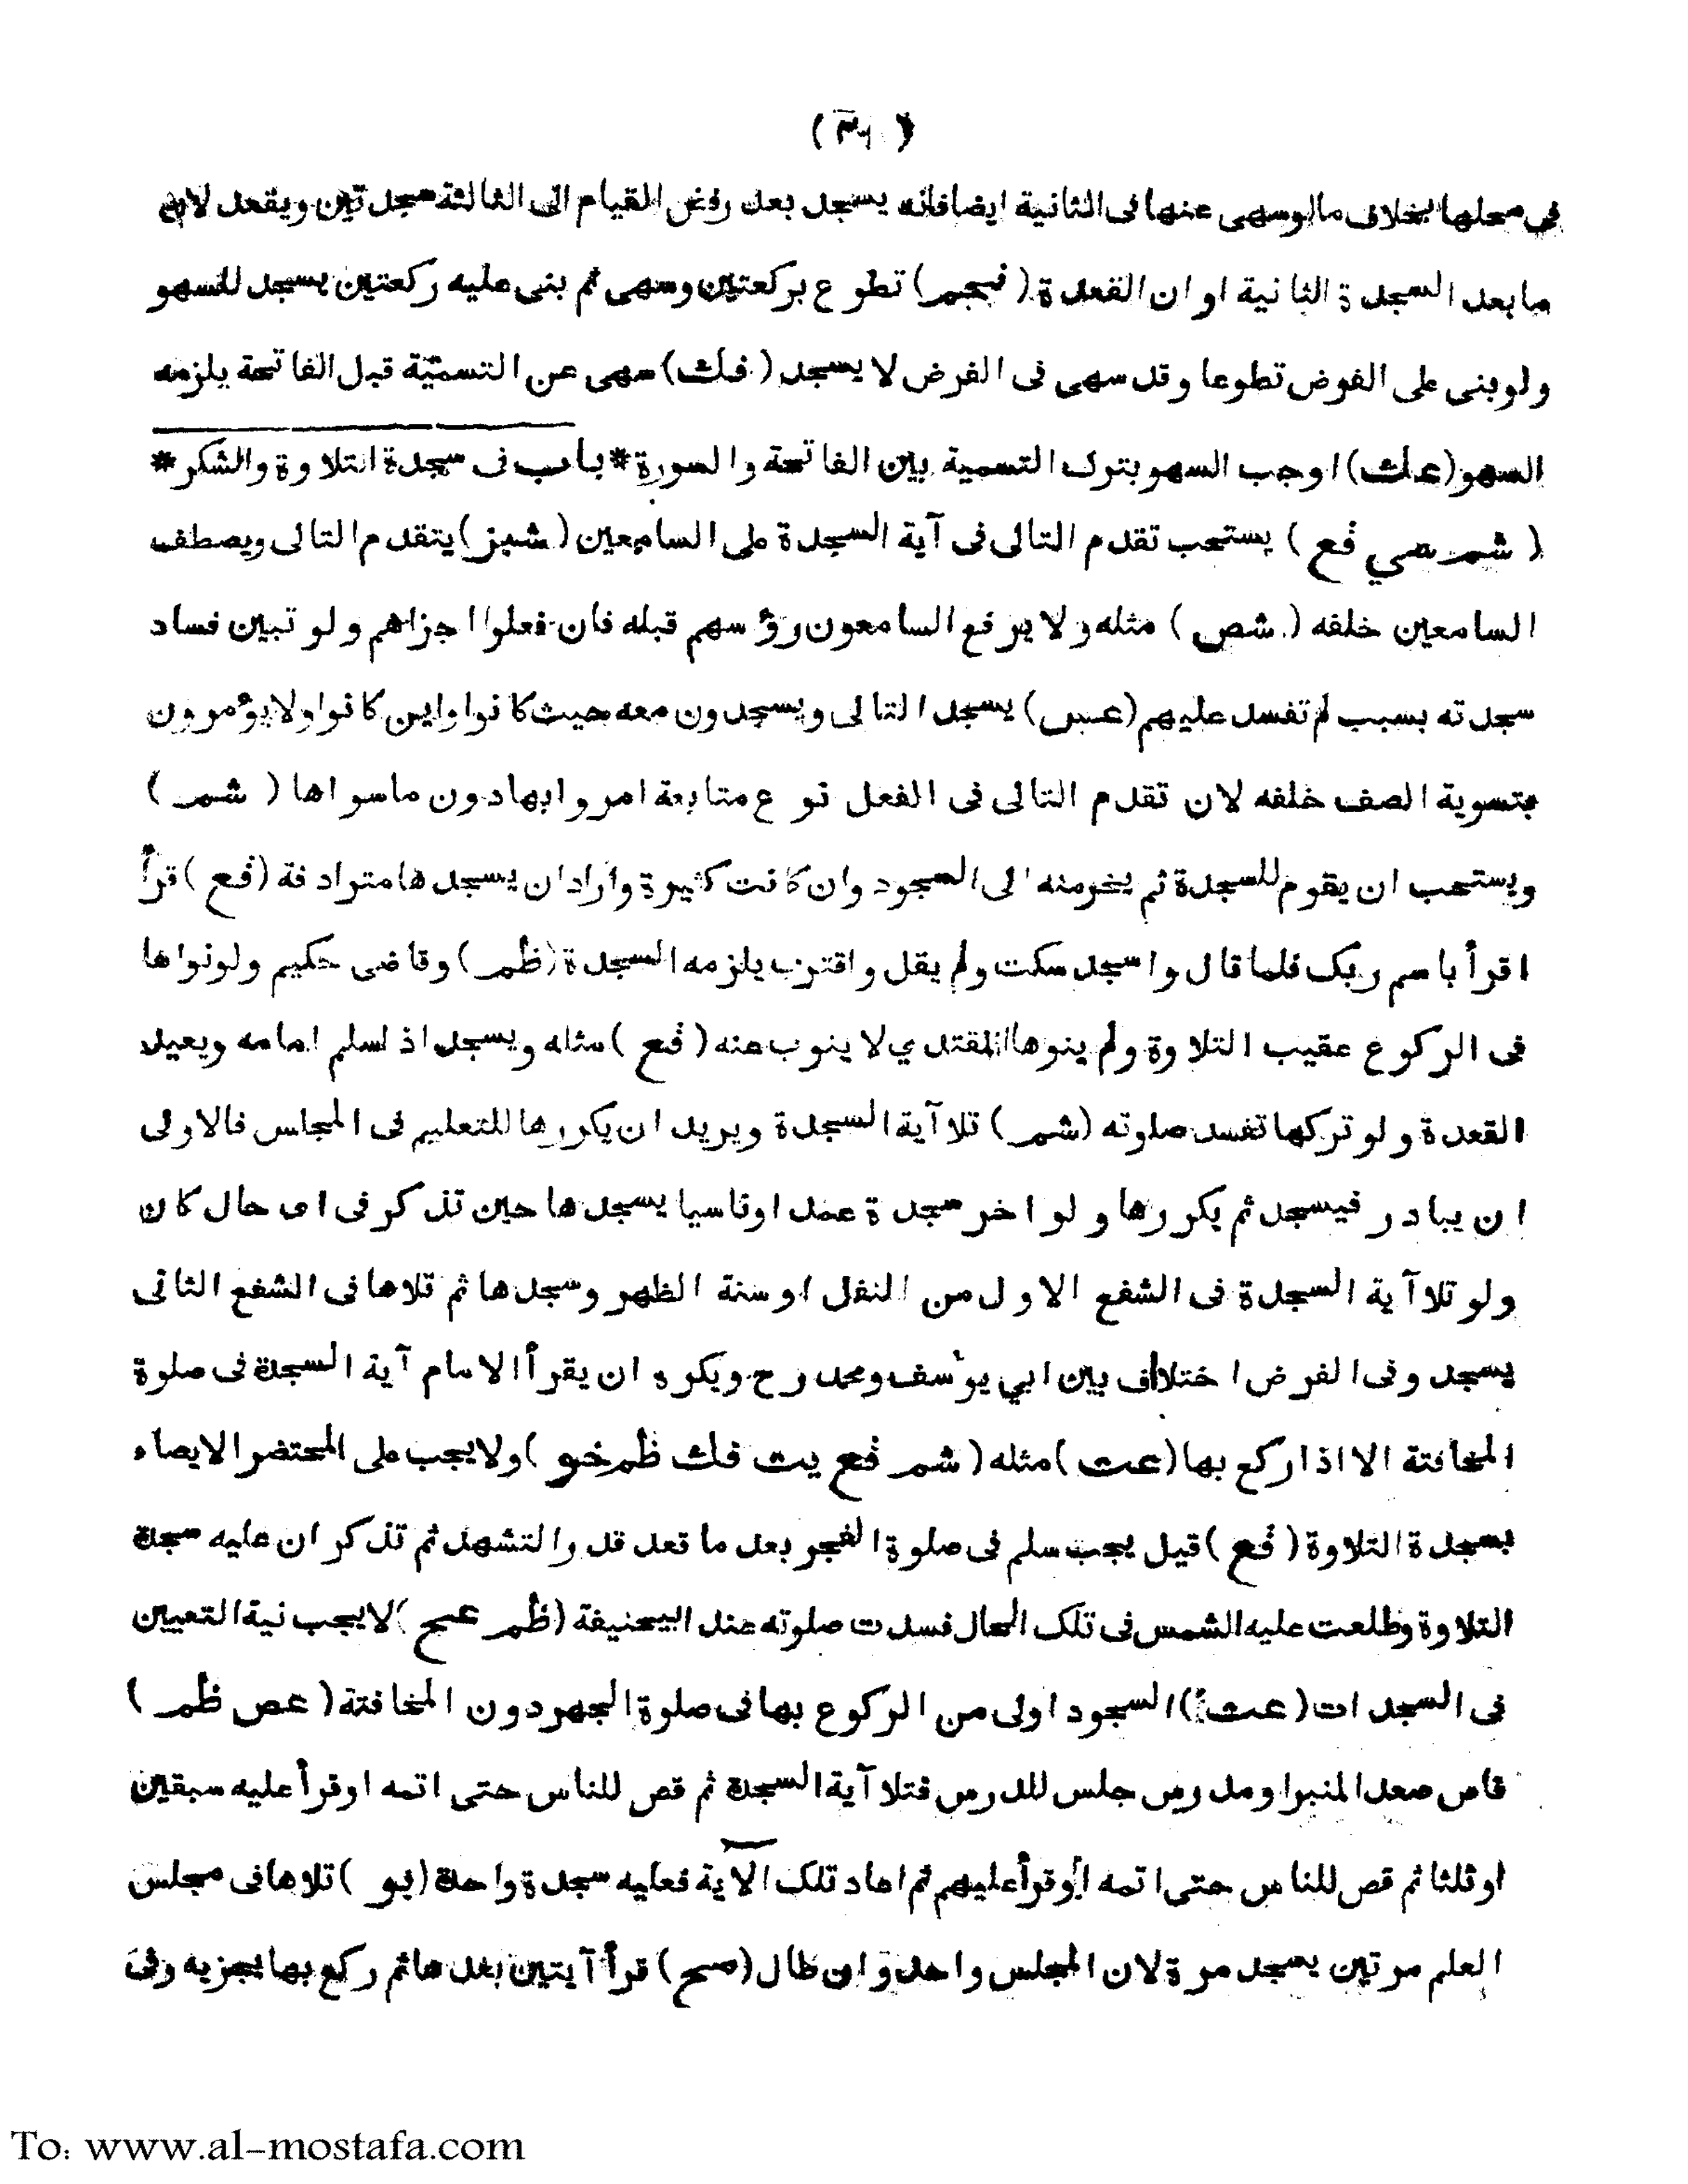 في محلها بخلاف مالوسهى عنها فى الثانية ايضافانه يسجد بعد رفض القيام الى الثالثة سجدتين ويقعد لان
مابعد السجدة الثانية اوان القعدة (فجم) تطوع بركعتين وسهى ثم بنى عليه ركعتين يسجد للسهو
ولوبنى على الفرض تطوعا وقد سهى فى الفرض لا يسجد (فك) سهى عن التسمية قبل الفاتحة يلزمه
السهو (عك) اوجب السهو بترك التسمية بين الفاتحة والسورة * باب فى سجدة التلاوة والشكر *
(شمر صي فع) يستحب تقدم التالى فى آية السجدة على السامعين (شبز) يتقدم التالى ويصطف
السامعين خلفه (شص) مثله ولا يرفع السامعون رؤسهم قبله فان فعلوا اجزاهم ولو تبين فساد
سجدته بسبب لم تفسد عليهم (عس) يسجد التالى ويسجدون معه حيث كانوا واين كانوا ولا يؤمرون
بتسوية الصف خلفه لان تقدم التالى فى الفعل نوع متابعة امروابها دون ماسواها (شمر)
ويستحب ان يقوم للسجدة ثم يخرمنه الى السجود وان كانت كثيرة واراد ان يسجدها مترادفة (فع) قرأ
اقرأ باسم ربك فلما قال واسجد سكت ولم يقل واقترب يلزمه السجدة (ظم) وقاضى حكيم ولونواها
فى الركوع عقيب التلاوة ولم ينوها المقتدي لا ينوب عنه (فع) مثله ويسجد اذ اسلم امامه ويعيد
القعدة ولو تركها تفسد صلوته (شم) تلا آية السجدة ويريد ان يكررها للتعليم فى المجلس فالاولى
ان يبادر فيسجد ثم يكررها ولو اخر سجدة عمد اوناسيا يسجدها حين تذكر فى اى حال كان
ولو تلا آية السجدة فى الشفع الاول من النفل اوسنة الظهر وسجدها ثم تلاها فى الشفع الثانى
يسجد وفى الفرض اختلاف بين ابي يوسف ومحمد رح ويكره ان يقرأ الامام آية السجدة فى صلوة
المخافتة الا اذاركع بها (عت) مثله (شمر فع يت فك ظم خو) ولا يجب على المحتضر الايصاء
بسجدة التلاوة (فع) قيل يجب سلم فى صلوة الفجر بعد ما قعد قدر التشهد ثم تذكر ان عليه سجدة
التلاوة وطلعت عليه الشمس فى تلك الحال فسدت صلوته عند ابيحنيفة (ظم عح) لا يجب نية التعيين
فى السجدات (عت) السجود اولى من الركوع بها فى صلوة الجهر دون المخافتة (عص ظم)
قاص صعد المنبر اومدرس جلس للدرس فتلا آية السجدة ثم قص للناس حتى اتمه اوقرأ عليه سبقين
اوثلثا ثم قص للناس حتى اتمه اوقرأ عليهم ثم اعاد تلك الآية فعليه سجدة واحدة (بو) تلاها فى مجلس
العلم مرتين يسجد مرة لان المجلس واحد وان طال (صح) قرأ آيتين بعدها ثم ركع بها يجزيه وفى
To: www.al-mostafa.com